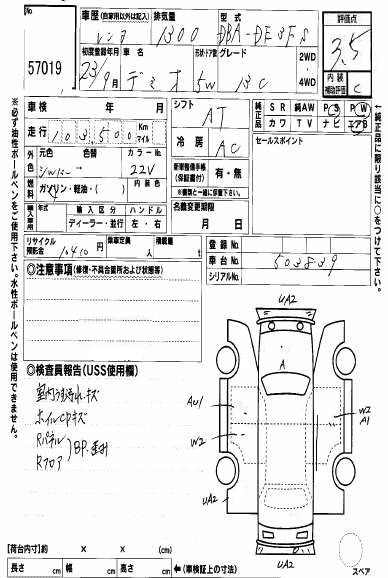 No.
57019
車歴 (自家用以外は記入)
レンタ
排気量
1300
型式
DBA-DE3FS
評価点
3.5
初度登録年月
23/9月
車名
デミオ
形状・ドア数
5W
グレード
13C
2WD
4WD
内装
補助評価
C
車検 年 月
走行 103,500 Km マイル
シフト
AT
冷房
AC
純正品
SR 純AW PS PW
カワ TV ナビ エアB
外色
元色 色替 カラーNo.
シルバー 22V
燃料
ガソリン・軽油・( )
内装色
新車整備手帳
(保証書付)
有・無
セールスポイント
輸入車専用
年式 輸入区分 ハンドル
ディーラー・並行 左・右
名義変更期限
月 日
リサイクル
預託金
10410円
乗車定員
人
積載量
t
登録No.
車台No.
503839
シリアルNo.
◎注意事項(修復・不具合箇所および状態等)
◎検査員報告(USS使用欄)
室内うす汚れ・キズ
ホイルCPキズ
Rパネル
Rフロア
BP・歪み
UA2
A
AU1
W2
W2
A1
UA2
UA2
スペア
【荷台内寸】約 × × (cm)
長さ cm 幅 cm 高さ cm
←(車検証上の寸法)
※必ず油性ボールペンをご使用下さい。水性ボールペンは使用できません。
純正品に限り該当に○をつけて下さい。